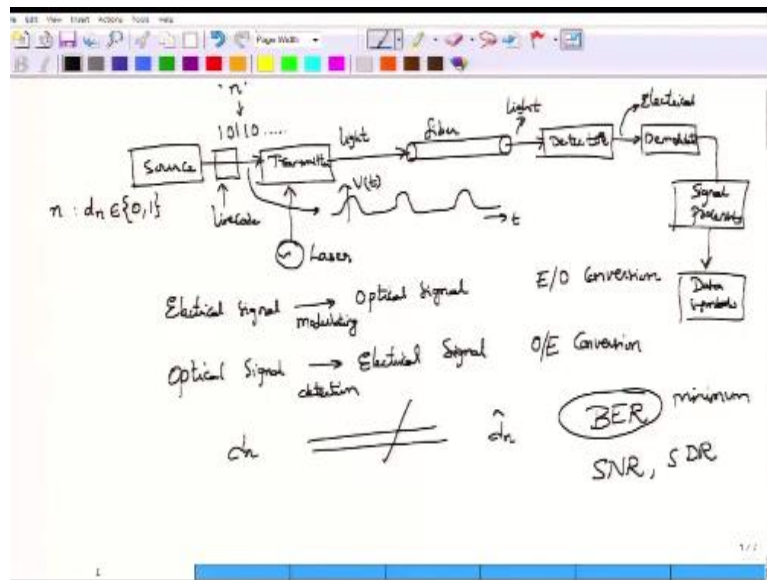 Edit View Insert Actions Tools Help
Page Width
'n'
10110.....
Source
Transmitter
light
fiber
light
Detector
Electrical
Demodulator
n : dn ∈ {0,1}
Line Code
V(t)
t
Laser
Signal
Processing
Data
Symbols
Electrical Signal → Optical Signal
modulating
E/O Conversion
Optical Signal → Electrical Signal
detection
O/E Conversion
dn
d̂n
BER
minimum
SNR, SDR